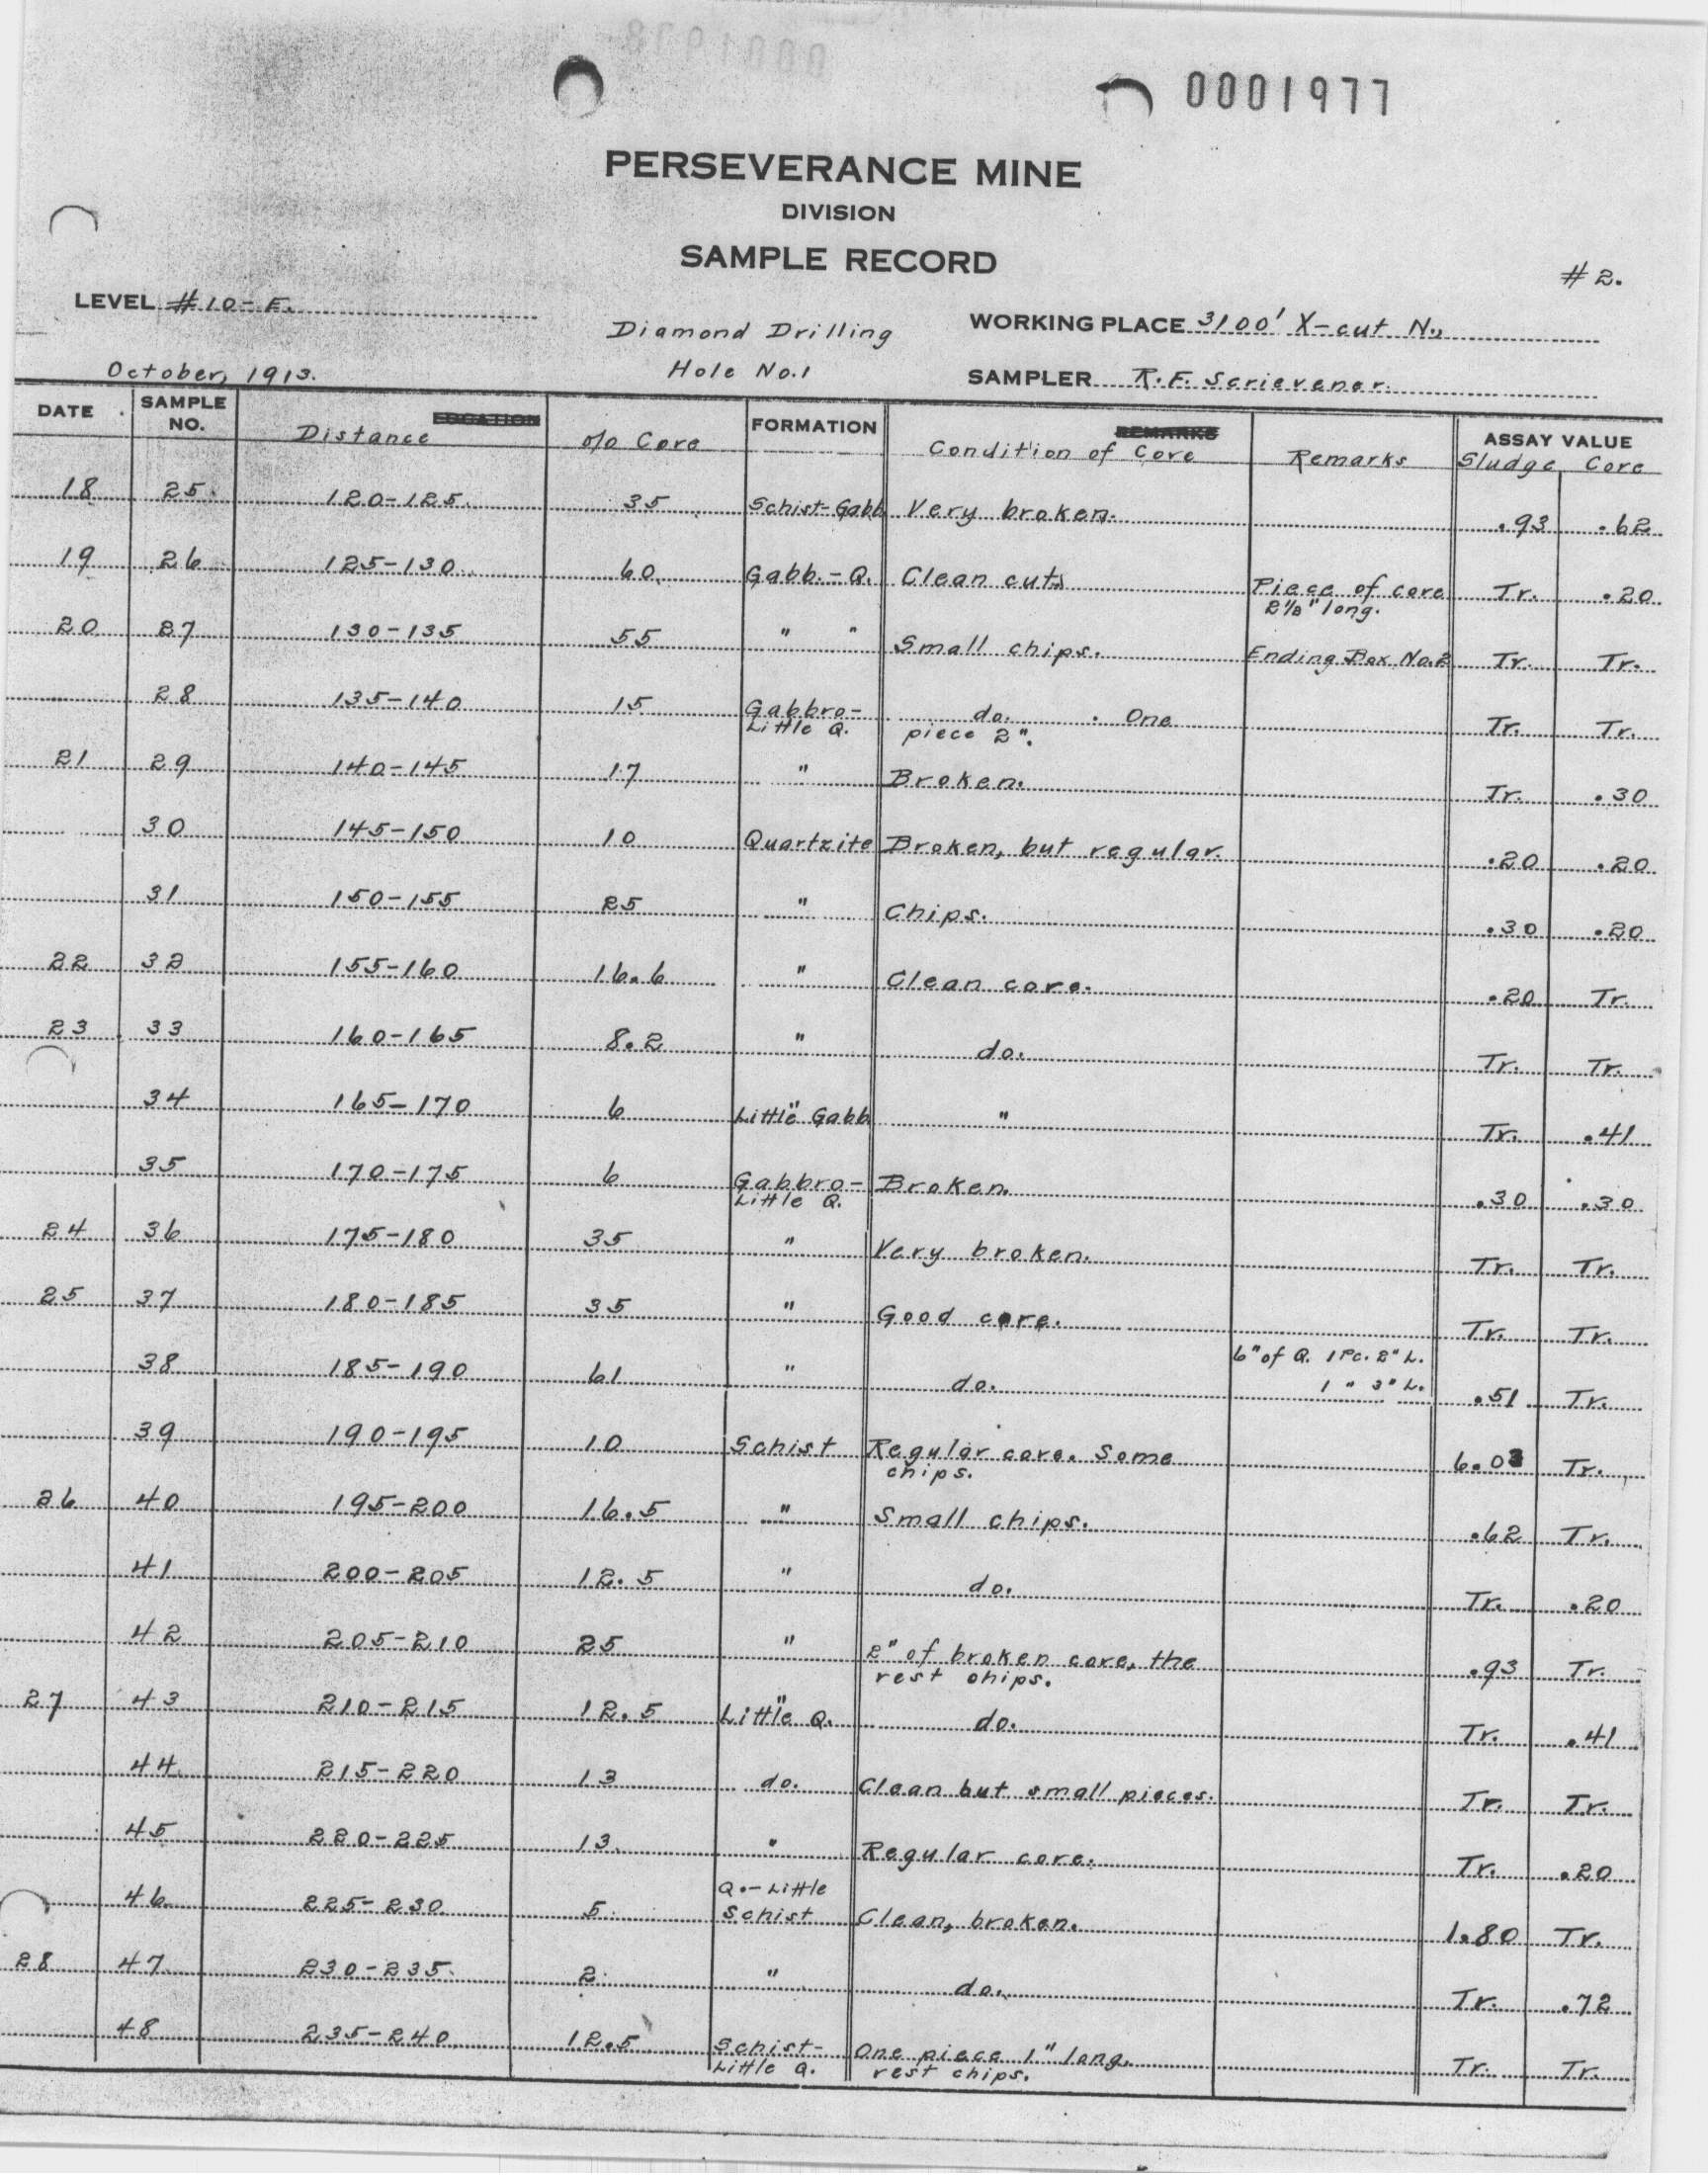 0001978
0001977
PERSEVERANCE MINE
DIVISION
SAMPLE RECORD
# 2.
LEVEL #10-E. Diamond Drilling WORKING PLACE 3100' X-cut N.,
October, 1913. Hole No.1 SAMPLER R.F. Scrievener.
DATE SAMPLE NO. LOCATION Distance o/o Core FORMATION REMARKS Condition of Core Remarks ASSAY VALUE Sludge Core
18 25 120-125 35 Schist-Gabb Very broken. .93 .62
19 26 125-130 60 Gabb.-Q. Clean cut. Piece of core Tr. .20
2 1/8" long.
20 27 130-135 55 " " Small chips. Ending Box No.2 Tr. Tr.
28 135-140 15 Gabbro- do. One Tr. Tr.
Little Q. piece 2".
21 29 140-145 17 " Broken. Tr. .30
30 145-150 10 Quartzite Broken, but regular. .20 .20
31 150-155 25 " Chips. .30 .20
22 32 155-160 16.6 " Clean core. .20 Tr.
23 33 160-165 8.2 " do. Tr. Tr.
34 165-170 6 " Little Gabb " Tr. .41
35 170-175 6 Gabbro- Broken. .30 .30
Little Q.
24 36 175-180 35 " Very broken. Tr. Tr.
25 37 180-185 35 " Good core. Tr. Tr.
6" of Q. 1 Pc. 2" L.
38 185-190 61 " do. 1 " 3" L. .51 Tr.
39 190-195 10 Schist Regular core. Some 6.03 Tr.
chips.
26 40 195-200 16.5 " Small chips. .62 Tr.
41 200-205 12.5 " do. Tr. .20
42 205-210 25 " 2" of broken core, the .93 Tr.
rest chips.
27 43 210-215 12.5 " Little Q. do. Tr. .41
44 215-220 13 do. Clean but small pieces. Tr. Tr.
45 220-225 13 " Regular core. Tr. .20
Q.-Little
46 225-230 5 Schist Clean, broken. 1.80 Tr.
28 47 230-235 2 " do. Tr. .72
48 235-240 12.5 Schist- One piece 1" long, Tr. Tr.
Little Q. rest chips.